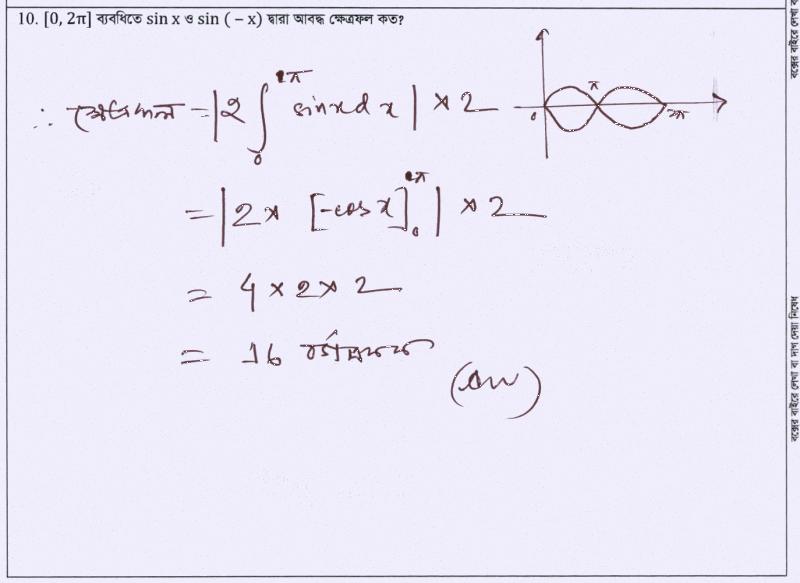 10. [0, 2π] ব্যবধিতে sin x ও sin ( – x) দ্বারা আবদ্ধ ক্ষেত্রফল কত?
∴ ক্ষেত্রফল = |2 ∫₀^π sin x d x | × 2
0 π 2π
= |2 × [-cos x]₀^π | × 2
= 4 × 2 × 2
= 16 বর্গএকক
(Ans)
বক্সের বাইরে লেখা বা দাগ দেয়া নিষেধ